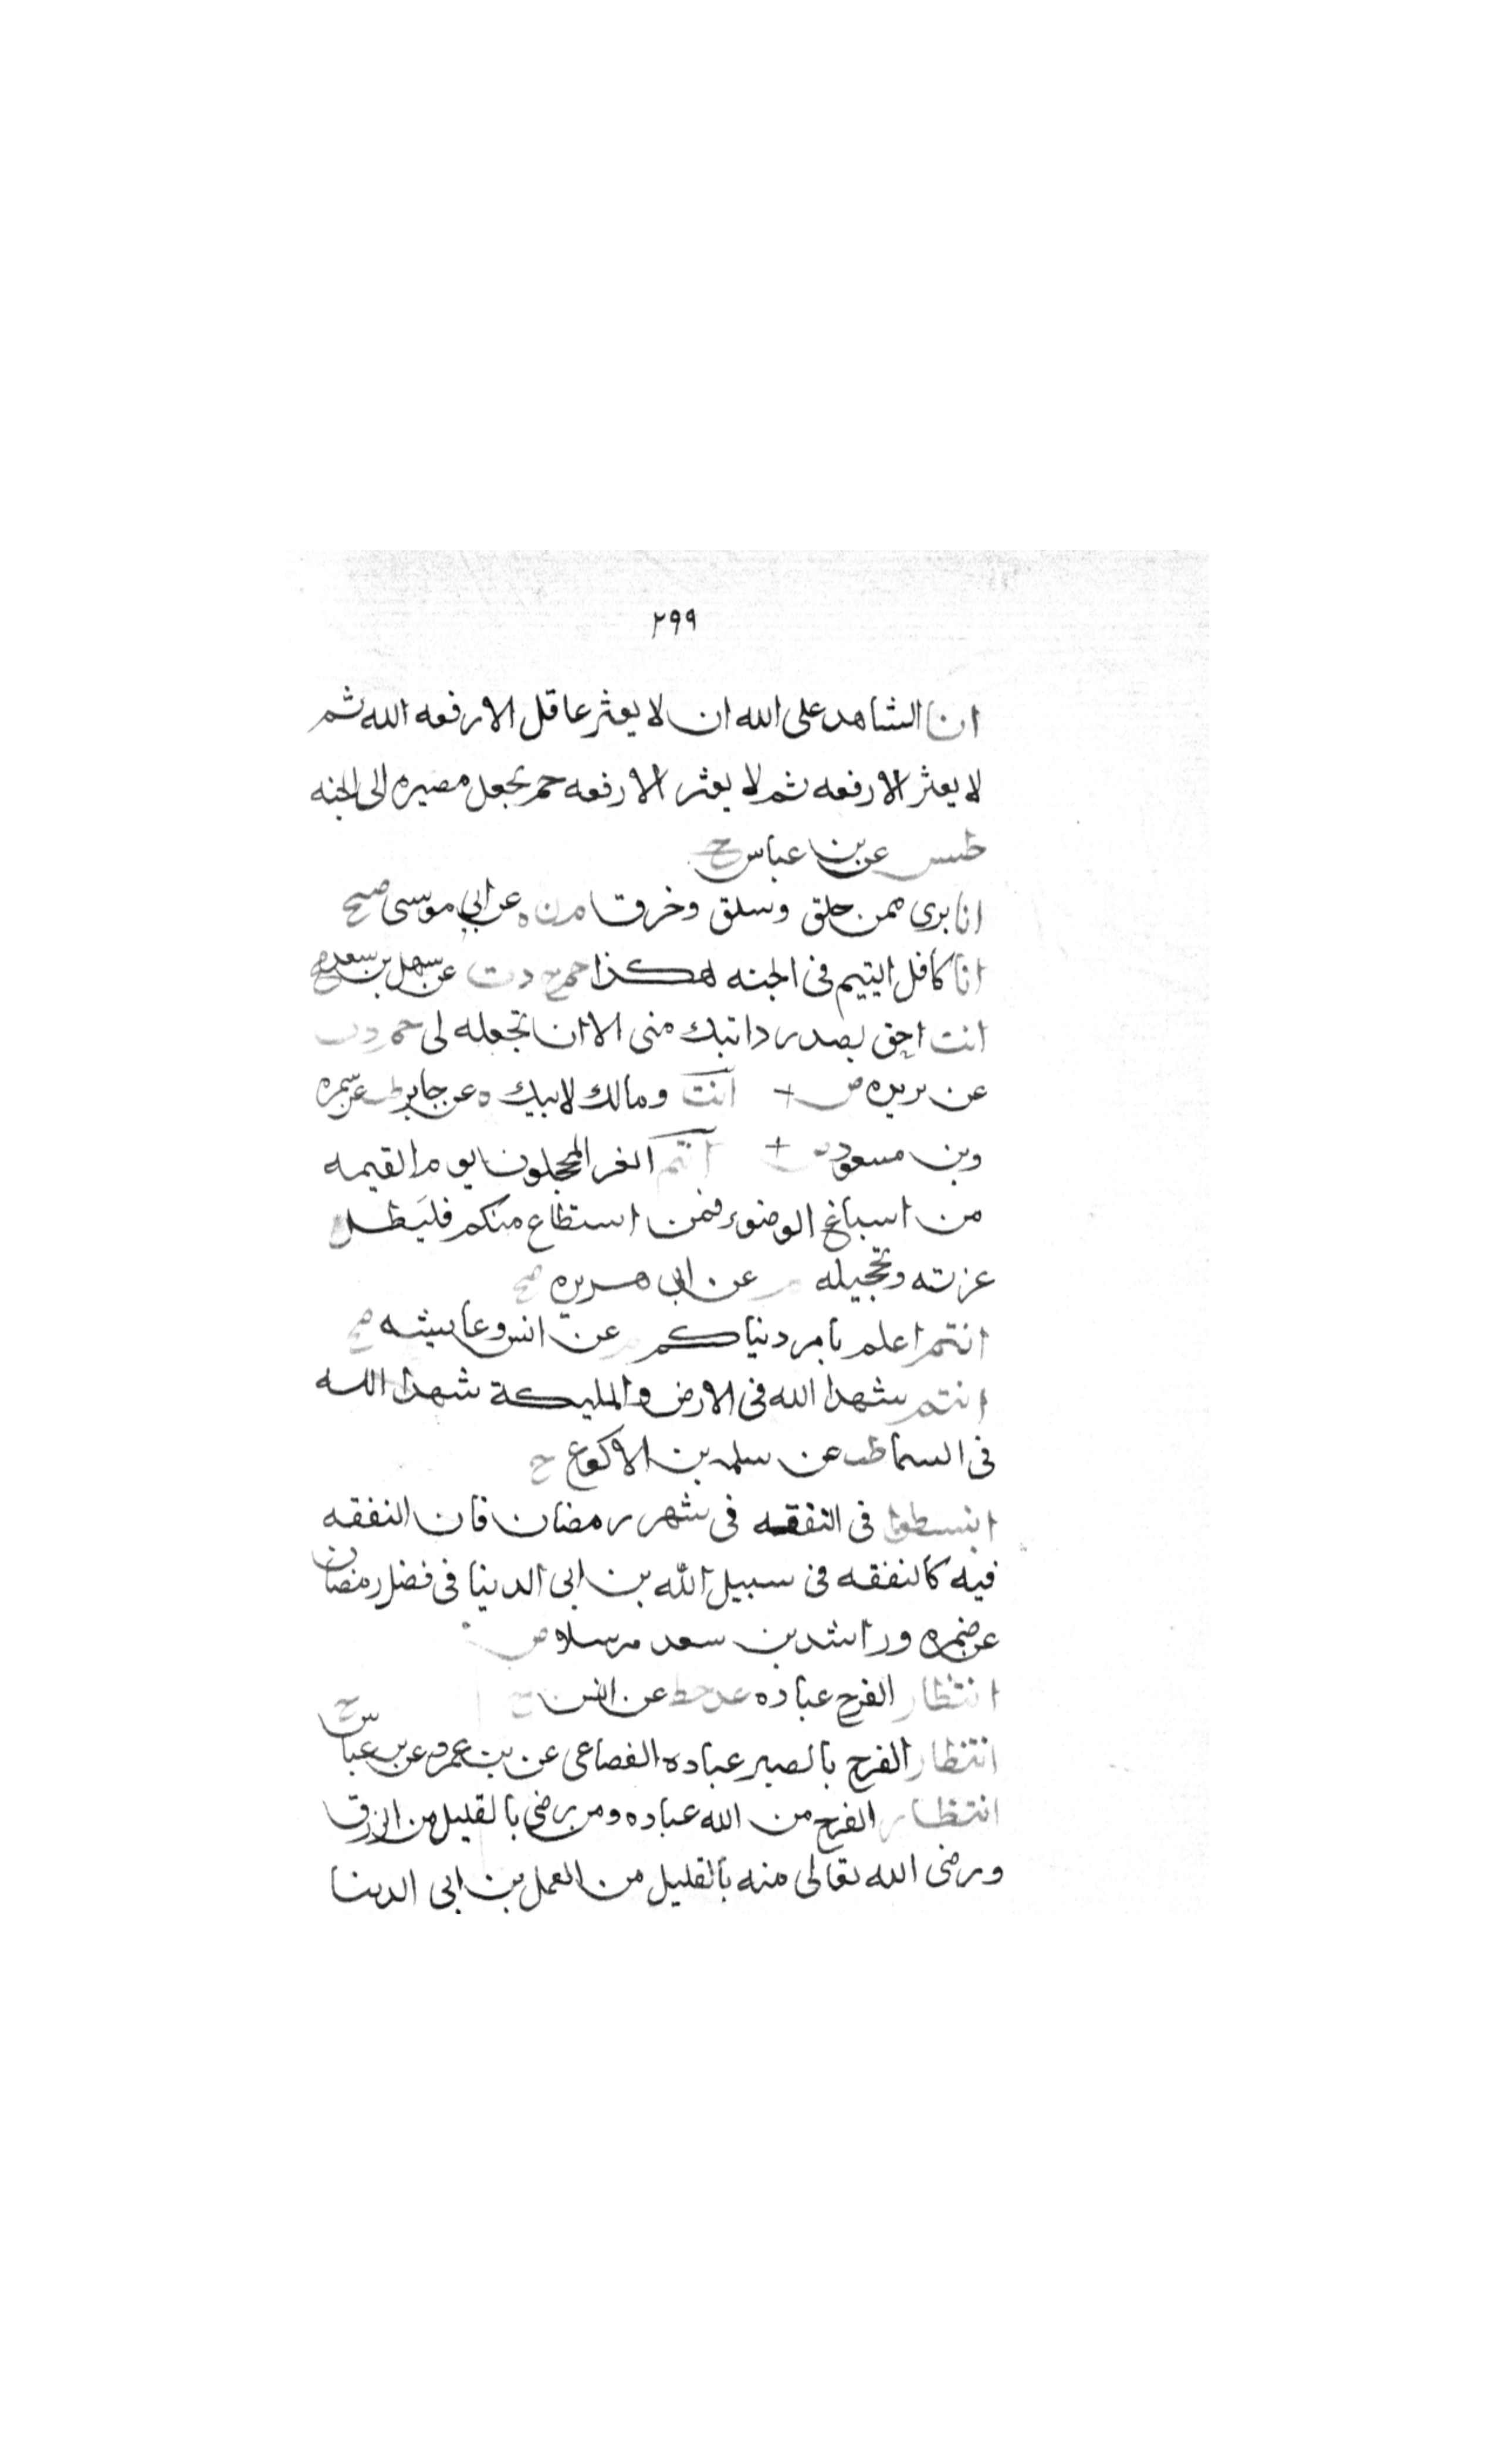 ٢٩٩
انا الشاهد على الله ان لا يعثر عاقل الا رفعه الله ثم
لا يعثر الا رفعه ثم لا يعثر الا رفعه حتى يجعل مصيره الى الجنه
طس عن بن عباس ح
انا برى ممن حلق وسلق وخرق م ن ه عن ابي موسى صح
انا كافل اليتيم فى الجنه هكذا حم خ د ت عن سهل بن سعد صح
انت احق بصدر دابتك منى الا ان تجعله لى حم د ت
عن بريده ض + انت ومالك لابيك ه عن جابر طب عن سمره
وبن مسعود ض + انتم الغر المحجلون يوم القيمه
من اسباغ الوضوء فمن استطاع منكم فليطل
غرته وتحجيله م عن ابى هريره صح
انتم اعلم بامر دنياكم م عن انس وعايشه صح
انتم شهدا الله فى الارض والمليكة شهدا الله
فى السما طب عن سلمه بن الاكوع ح
انبسطوا فى النفقه فى شهر رمضان فان النفقه
فيه كالنفقه فى سبيل الله بن ابى الدنيا فى فضل رمضان
عن ضمره وراشد بن سعد مرسلا ض
انتظار الفرج عباده عد خط عن انس ح
انتظار الفرج بالصبر عباده القضاعى عن بن عمر وعن بن عباس ح
انتظار الفرج من الله عباده ومن رضى بالقليل من الرزق
ورضى الله تعالى منه بالقليل من العمل بن ابى الدنيا